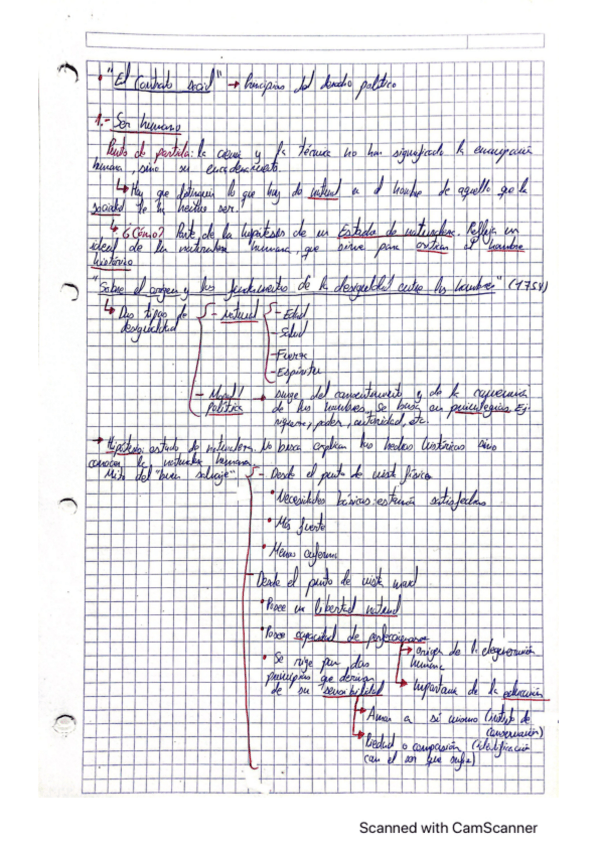 • "El Contrato social" → Principios del derecho político
1.- Ser humano
Punto de partida: la ciencia y la técnica no han significado la emancipación
humana, sino su encadenamiento.
↳ Hay que distinguir lo que hay de natural en el hombre de aquello que la
sociedad le ha hecho ser.
↳ ¿Cómo? Parte de la hipótesis de un Estado de naturaleza. Refleja un
ideal de la naturaleza humana, que sirve para criticar al hombre
histórico
"Sobre el origen y los fundamentos de la desigualdad entre los hombres" (1754)
↳ Dos tipos de desigualdad
- Natural
- Edad
- Salud
- Fuerza
- Espíritu
- Moral/Política → surge del consentimiento y de la
de los hombres. Se basa en privilegios. Ej:
riqueza, poder, autoridad, etc.
→ Hipótesis: estado de naturaleza. No busca explicar los hechos históricos sino
conocer la naturaleza humana
Mito del "buen salvaje"
- Desde el punto de vista físico
• Necesidades básicas: estarían satisfechas
• Más fuerte
• Menos enfermo
- Desde el punto de vista moral
• Posee una libertad natural
• Posee capacidad de perfeccionarse
→ origen de la degeneración humana
→ Importancia de la educación
• Se rige por dos
principios que derivan
de su sensibilidad
→ Amor a sí mismo (instinto de
conservación)
→ Piedad o compasión (identificación
con el ser que sufre)
Scanned with CamScanner